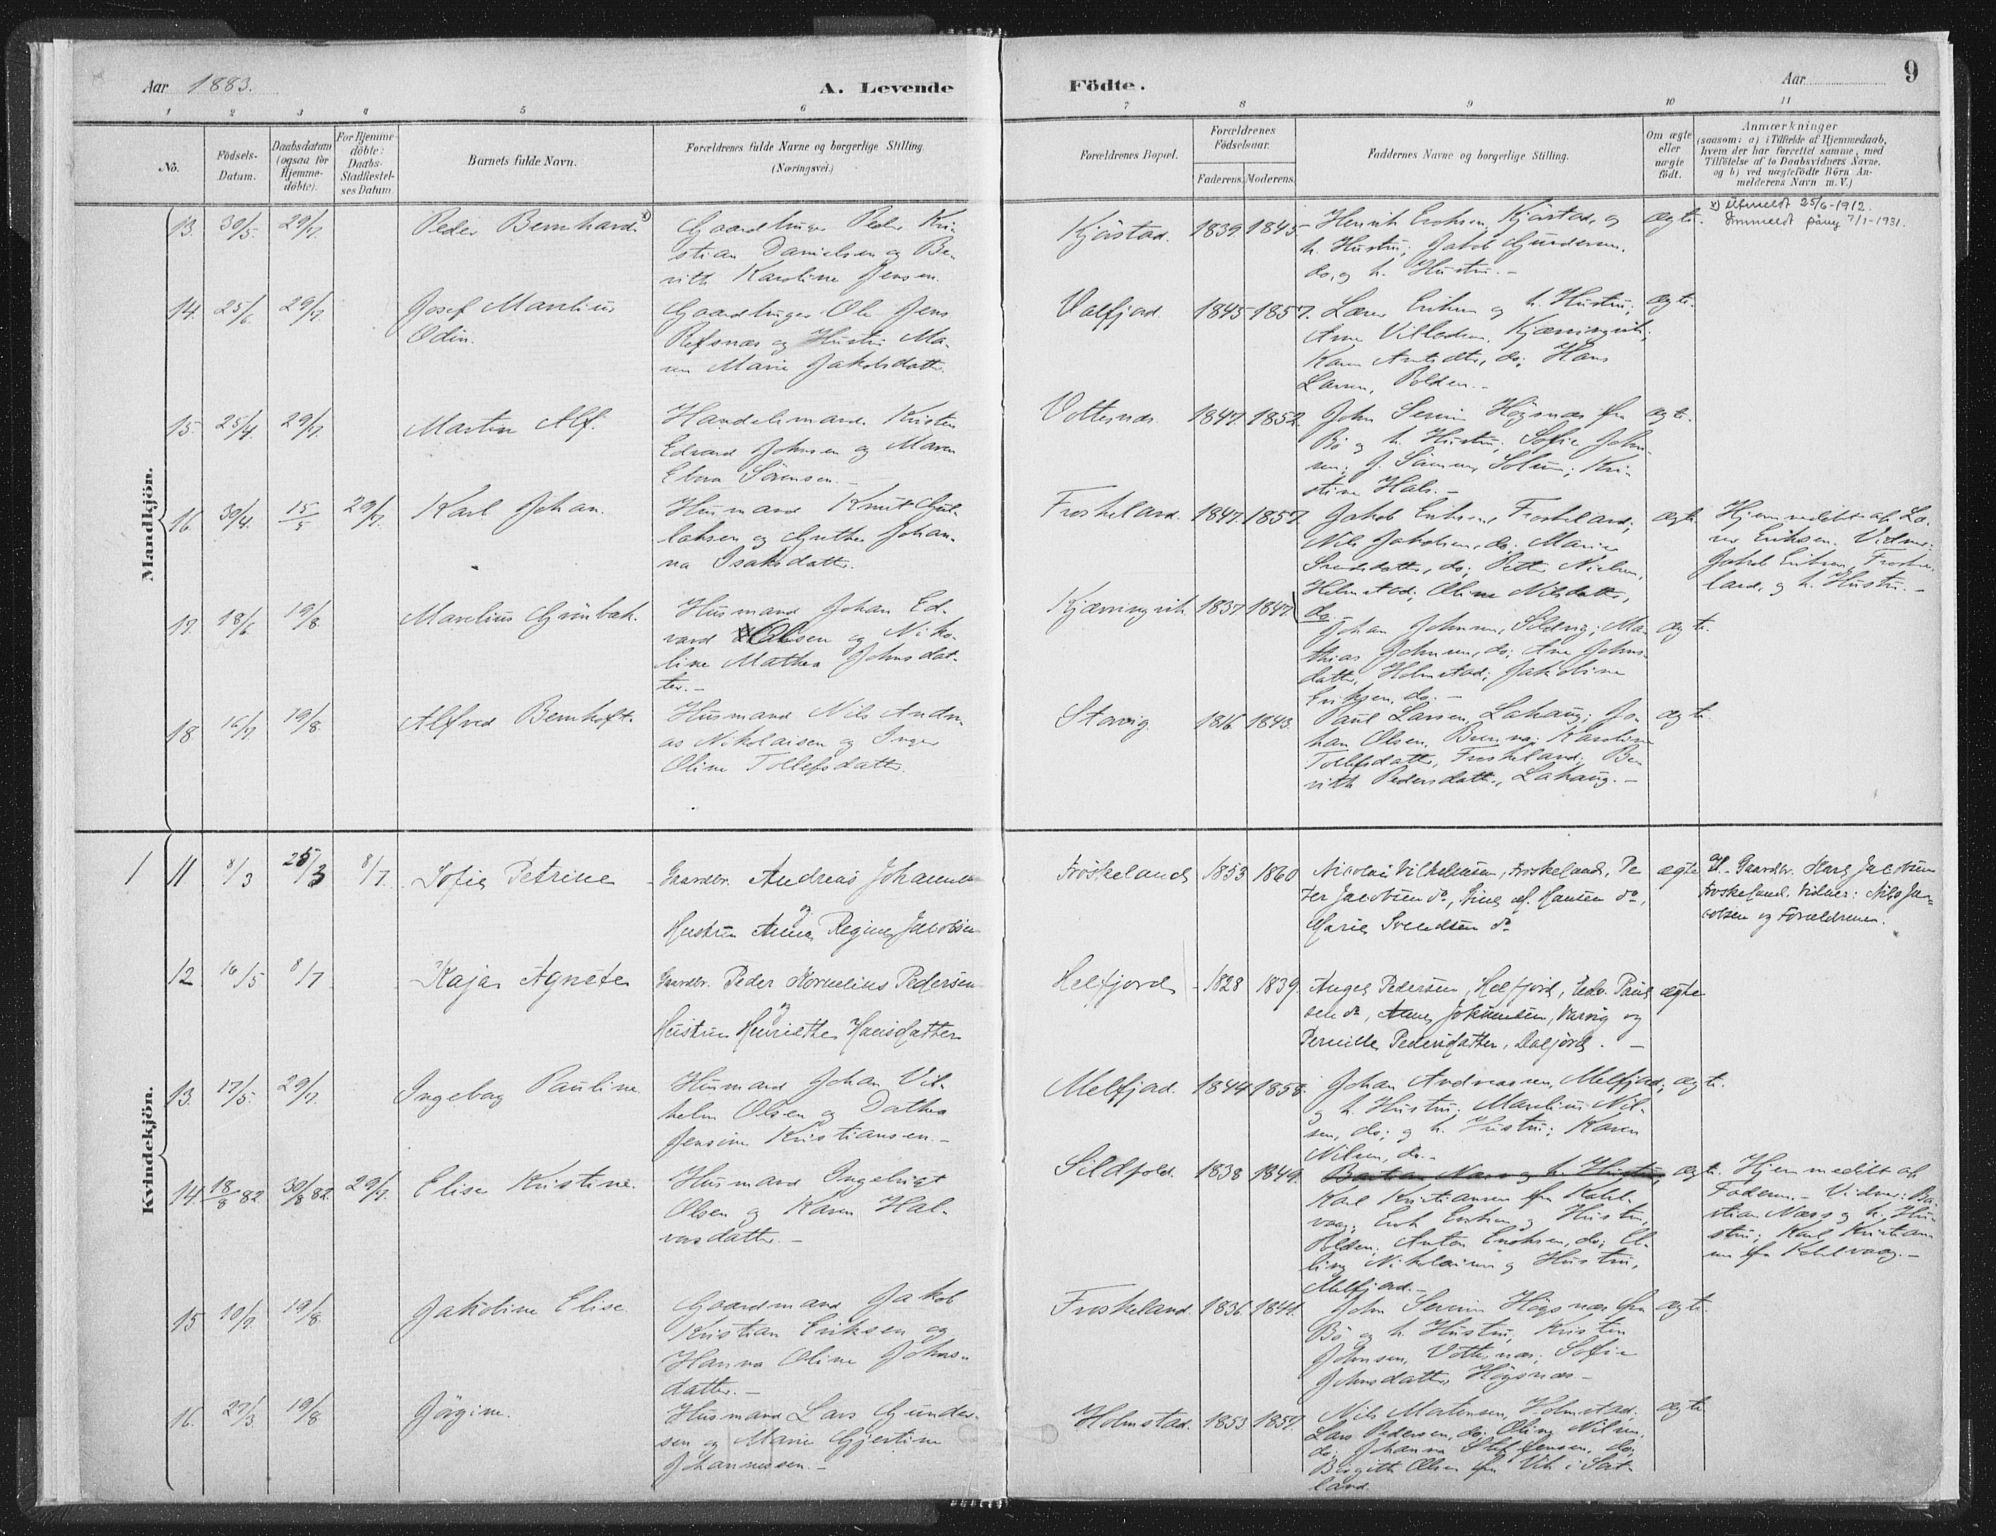 Aar 1883.
A. Levende
Födte.
Aar
9
1 2 3 4 5 6 7 8 9 10 11
No.
Födsels-
Datum.
Daabsdatum
(ogsaa for
Hjemme-
döbte).
For Hjemme-
döbte:
Daabs-
Stadfæstel-
ses Datum
Barnets fulde Navn.
Forældrenes fulde Navne og borgerlige Stilling
(Næringsvei.)
Forældrenes Bopæl.
Forældrenes
Födselsaar.
Faderens. Moderens.
Faddernes Navne og borgerlige Stilling.
Om ægte
eller
uægte
födt.
Anmærkninger
(saasom: a) i Tilfælde af Hjemmedaab,
hvem der har forrettet samme, med
Tilföielse af to Daabsvidners Navne,
og b) ved uægtefödte Börn An-
melderens Navn m. V.)
Mandkjön.
13. 30/5. 29/7. Peder Bernhard x)
Gaardbruger Peder Kri-
stian Danielsen og Be-
rith Karoline Jensen.
Kjörstad. 1839. 1845.
Henrik Enoksen, Kjörstad, og
h. Hustru; Jakob Gundersen,
do, og h. Hustru. -
ægte.
x) utmeldt 25/6-1912.
Innmeldt påny 7/1-1931.
14. 25/6 29/7. Josef Marelius
Odin.
Gaardbruger Ole Jens
Refsnæs og Hustru Ma-
ren Marie Jakobsdatter.
Valfjord. 1845 1857.
Lærer Eriksen og h. Hustru;
Arne Villadsen, Kjærringvik;
Karen Antsdtr, do; Hans
Larsen, Polden. -
ægte.
15. 25/4. 29/7. Martin Alf.
Handelsmand Kristen
Edvard Johnsen og Maren
Elena Sörensen. -
Vottesnæs. 1847. 1852.
John Serein Högsnæs fra
Bö og h. Hustru, Sofie John-
sen; J. Sörensen, Solum; Kri-
stine Hals. -
ægte.
16. 30/4. 15/5 29/7. Karl Johan.
Husmand Knut Gul-
laksen og Grethe Johan-
na Isaksdatter.
Froskeland. 1847. 1857.
Jakob Eriksen, Froskeland;
Nils Jakobsen, do; Marie
Svendsdatter, do; Petter Nielsen,
Holmstad; Oline Nilsdatter,
do. -
ægte
Hjemmedöbt af Læ-
rer Eriksen. Vidner:
Jakob Eriksen, Froske-
land, og h. Hustru. -
17. 18/6 19/8. Marelius Grönbek.
Husmand Johan Ed-
vard Olsen og Niko-
line Mathea Johnsdat-
ter. -
Kjærringvik. 1837. 1847.
Johan Johnsen, Sildvig; Ma-
thias Johnsen, do; Ane Johns-
datter, Holmstad; Jakobine
Eriksen, do. -
ægte.
18. 16/7. 19/8. Alfred Bernhoft.
Husmand Nils Andre-
as Nikolaisen og Inger
Oline Tollefsdatter.
Storvig. 1816 1843.
Paul Larsen, Lahaug; Jo-
han Olsen, Brenna; Karoline
Tollefsdatter, Froskeland; Be-
rith Pedersdatter, Lahaug. -
ægte.
Kvindekjön.
1 11 8/3 25/3 8/7. Sofie Petrine
Gaardbr. Andreas Johannesen
og
Hustru Anna Regine Jacobsen
Froskeland 1853 1860
Nicolai Vilhelmsen, Froskeland, Pe-
ter Jacobsen do, Hansen do,
Marie Svendsen do
ægte
Gaardbr. Hans Jacobsen
Froskeland. Vidner: Nils Ja-
cobsen og Forældrene.
12 16/5 8/7 Kaja Agnete
Gaardbr. Peder Kornelius Pedersen
og
Hustru Henriette Hansdatter
Melfjord 1828 1839.
Anges Pedersen, Melfjord, Paul-
sen do, Anne Johnsen, Varvig og
Pernille Pedersdatter, Daljord. -
ægte
13. 17/5. 29/7. Ingeborg Pauline
Husmand Johan Vil-
helm Olsen og Dathea
Jensine Kristiansen. -
Melfjord. 1844 1858.
Johan Andreassen, Melfjord;
og h. Hustru; Marelius Nil-
sen, do; og h. Hustru; Karen
Nilsen, do. -
ægte.
14. 18/8 82. 30/8 82. 29/7. Elise Kristine.
Husmand Ingebrigt
Olsen og Karen Hal-
vorsdatter. -
Sildpold. 1838 1849.
Bastian Næss og h. Hustru,
Karl Kristiansen fra Kahl-
vaag; Enok Enoksen og Hustru,
Polden; Anton Enoksen, do; El-
ling Nikolaisen og Hustru,
Melfjord. -
ægte.
Hjemmedöbt af
Faderen. - Vidner: Ba-
stian Næss og h. Hu-
stru; Karl Kristian-
sen fra Kahlvaag. -
15 10/7. 19/8. Jakobine Elise.
Gaardmand Jakob
Kristian Eriksen og
Hanna Oline Johns-
datter. -
Froskeland. 1836. 1841.
John Serein Högsnæs fra
Bö og h. Hustru, Kristen
Johnsen, Vottesnæs; Sofie
Johnsdatter, Högsnæs -
ægte.
16. 27/3 19/8. Jörgine.
Husmand Lars Gunder-
sen og Marie Gjertine
Johannessen. -
Holmstad. 1853 1857.
Nils Mortensen, Holmstad;
Lars Pedersen, do; Oline Nilsen,
do; Johanna Steffensen, do;
Birgitte Olsen fra Vik i Sort-
land.
ægte.